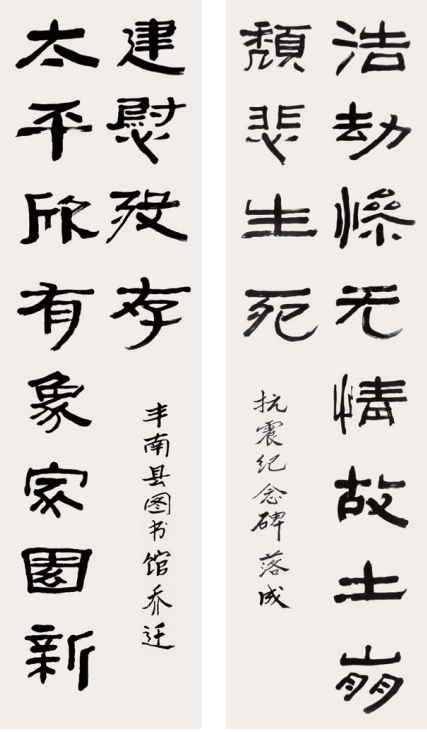 浩劫惨无情故土崩
頹悲生死
抗震纪念碑落成
太平欣有象家園新
建慰殁存
丰南县图书馆乔迁